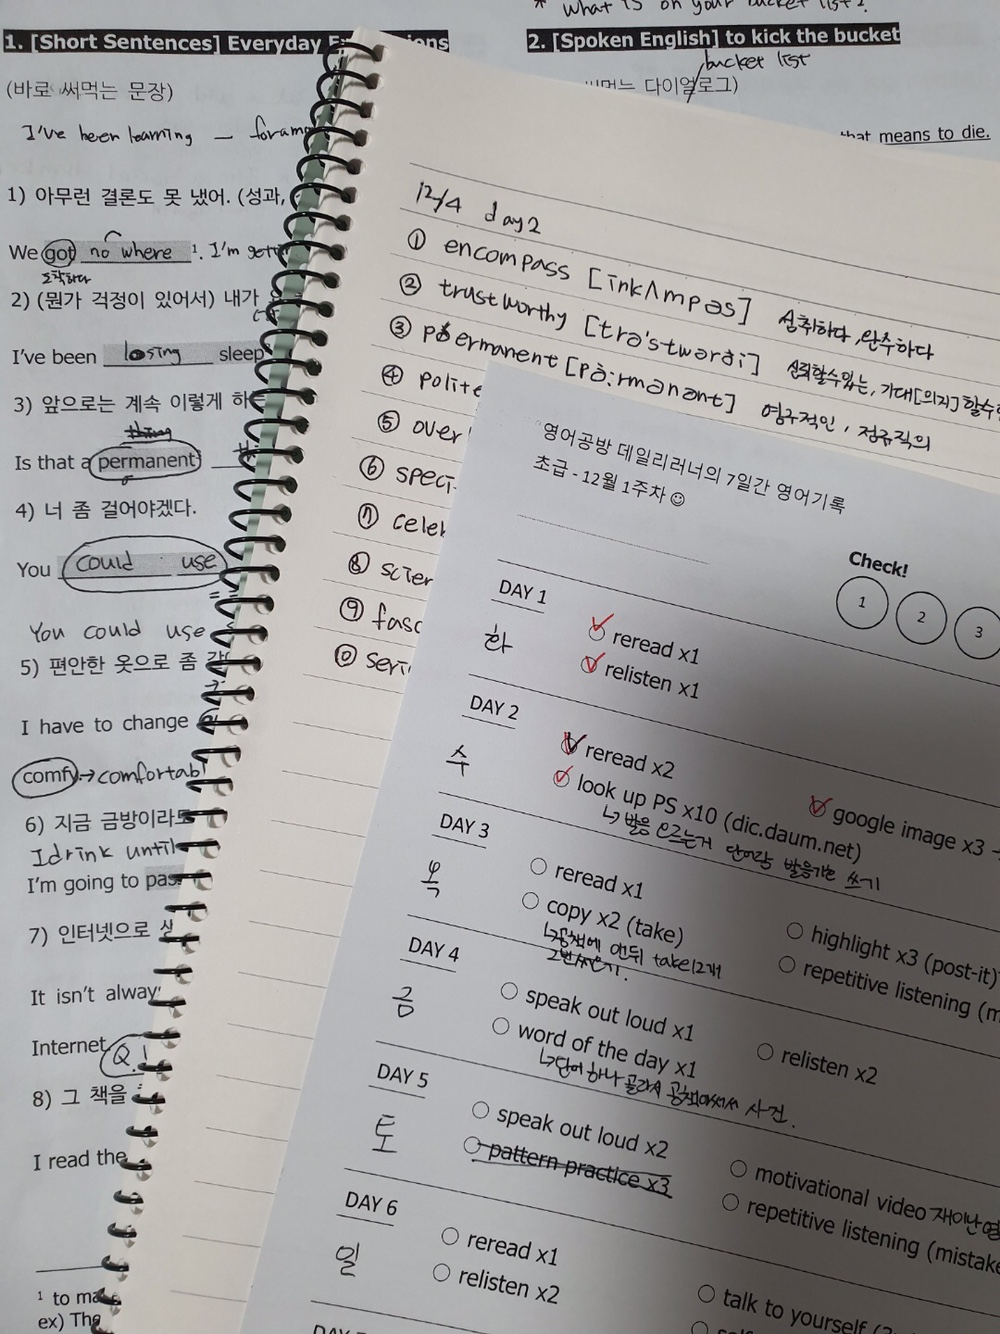 * What is on your bucket list?
1. [Short Sentences] Everyday
(바로 써먹는 문장)
I've been learning —
1) 아무런 결론도 못 냈어. (성과,
We got no where ¹. I'm
도착하다
2) (뭔가 걱정이 있어서) 내가
I've been losing sleep
3) 앞으로는 계속 이렇게
thing
Is that a permanent
4) 너 좀 걸어야겠다.
You could use
You could use
5) 편안한 옷으로 좀
I have to change
comfy → comfortabl
6) 지금 금방이라도
I drink until
I'm going to pas
7) 인터넷으로
It isn't alway
Internet
Q!
8) 그 책을
I read the
¹ to ma
ex) The
2. [Spoken English] to kick the bucket
bucket list
써먹는 다이얼로그)
that means to die.
12/4 day2
① encompass [inkʌmpəs] 성취하다, 완수하다
② trustworthy [trə'stwərði] 신뢰할수있는, 기대[의지]할수
③ permanent [pə:rmənənt] 영구적인, 정규직의
④ polite
⑤ over
⑥ speci
⑦ celeb
⑧ scien
⑨ fasc
⑩ seri
영어공방 데일리러너의 7일간 영어기록
초급 - 12월 1주차 ☺
Check!
1 2 3
DAY 1
화
reread x1
relisten x1
DAY 2
수
reread x2
look up PS x10 (dic.daum.net)
google image x3
↳ 발음 모르는거 단어랑 발음기호 쓰기
DAY 3
목
reread x1
copy x2 (take)
↳ 공책에 맨뒤 take 12개
2번씩쓰기.
highlight x3 (post-it)
repetitive listening (m
DAY 4
금
speak out loud x1
word of the day x1
↳ 단어 하나 골라서 공책에써서 사진.
relisten x2
DAY 5
토
speak out loud x2
pattern practice x3
motivational video 재미난영
repetitive listening (mistake
DAY 6
일
reread x1
relisten x2
talk to yourself
DAY